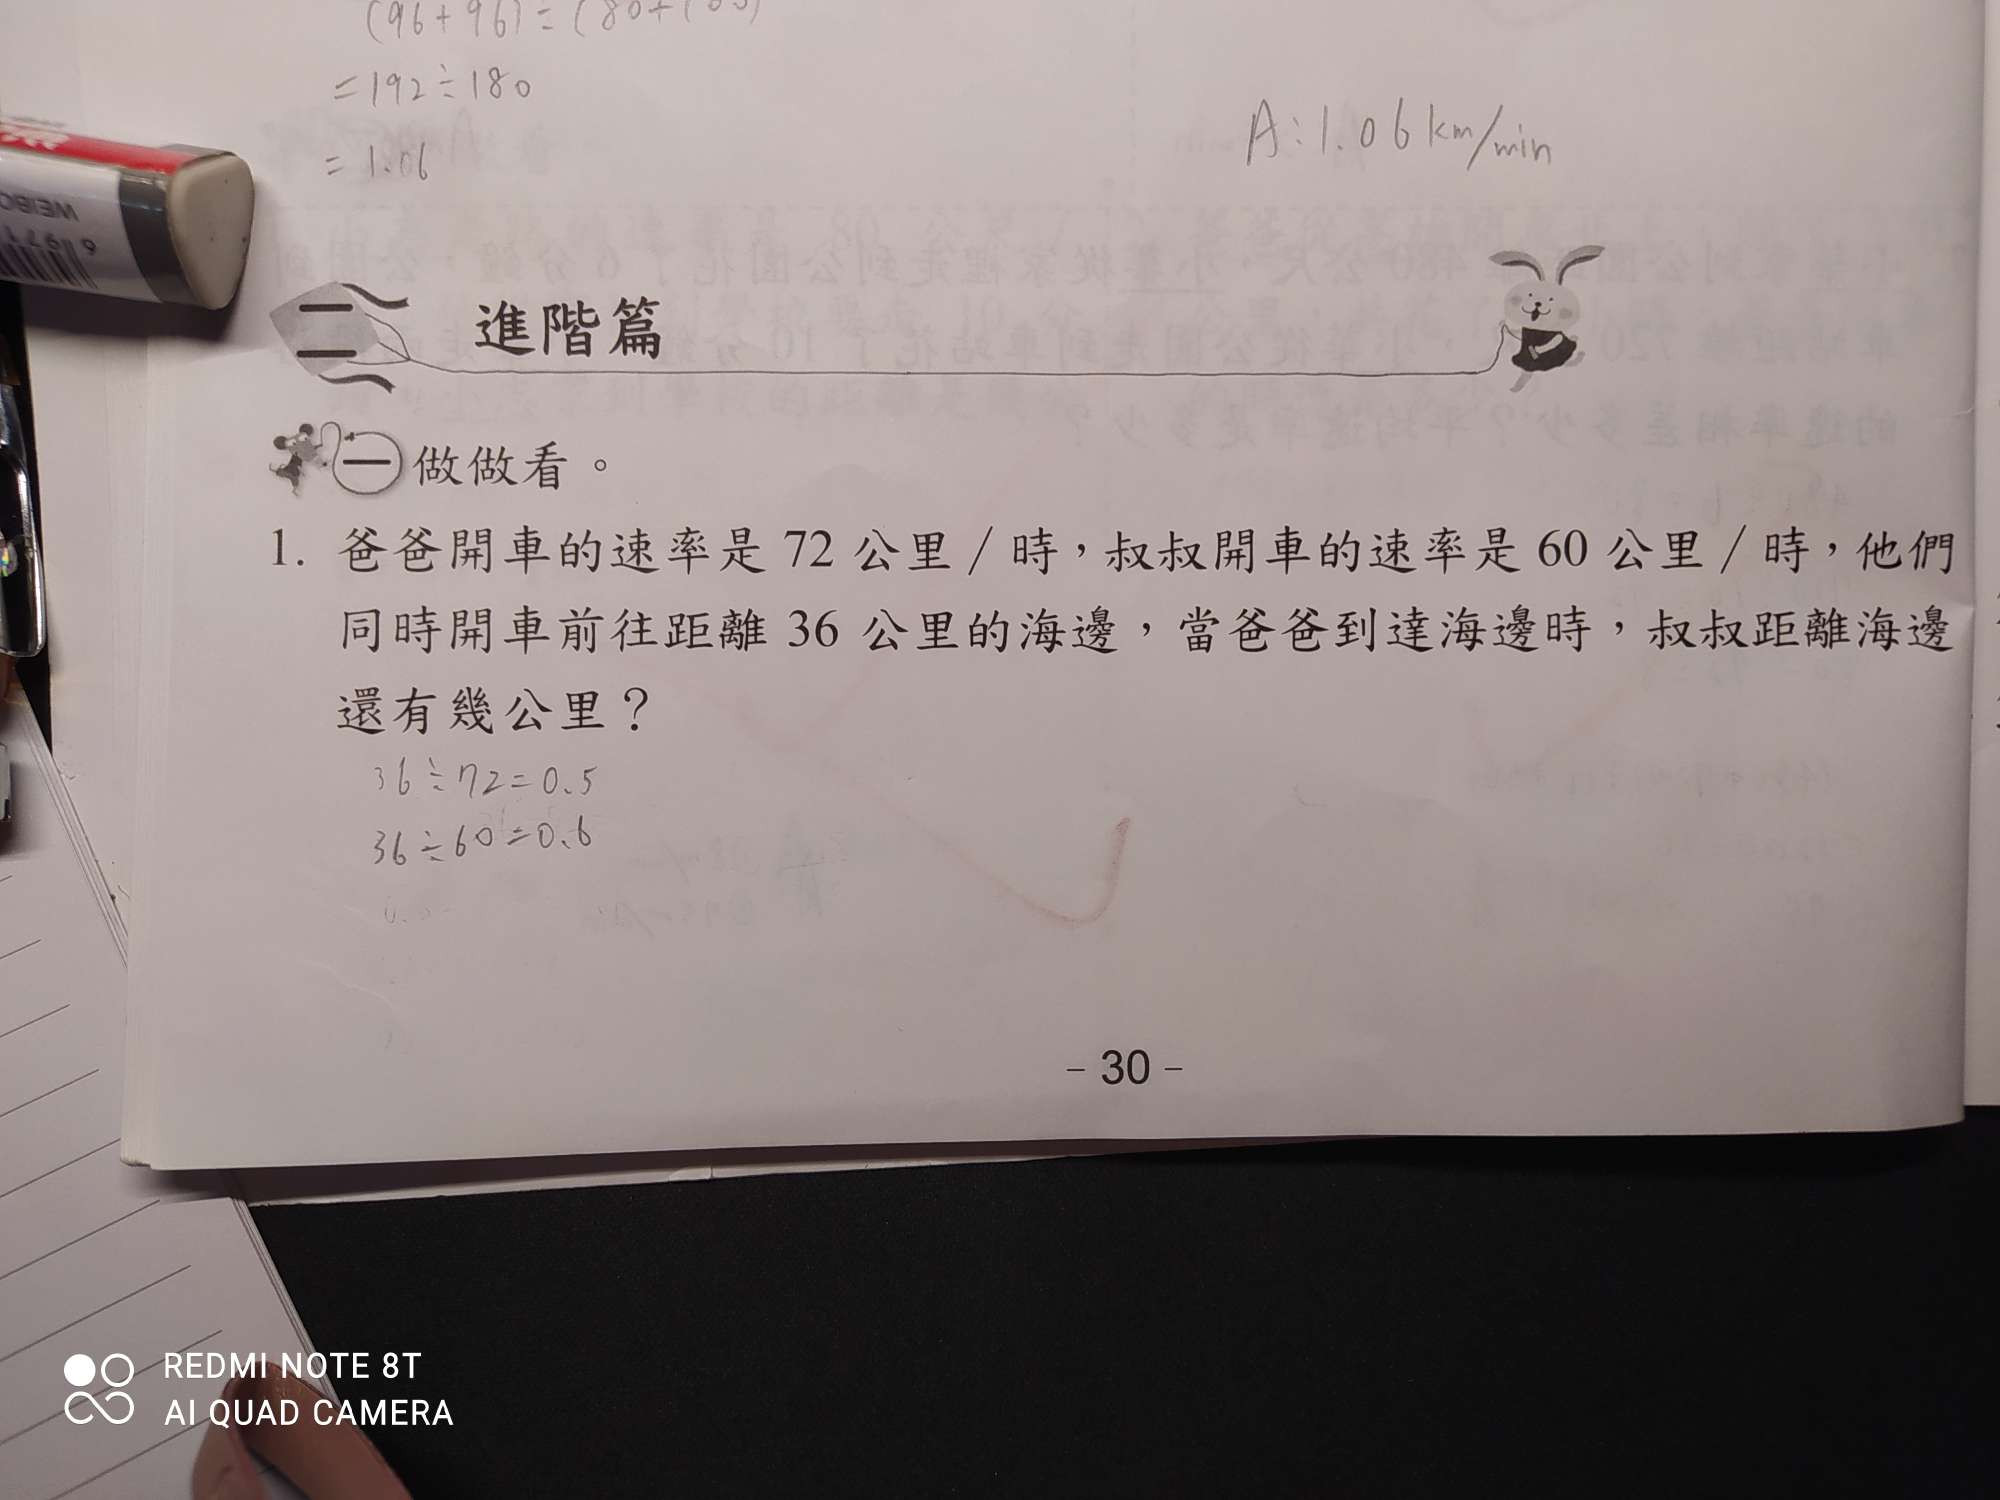 (96+96)÷(80+100)
=192÷180
=1.06
A:1.06km/min
WEIBO
6971
二 進階篇
一 做做看。
1. 爸爸開車的速率是 72 公里/時，叔叔開車的速率是 60 公里/時，他們
同時開車前往距離 36 公里的海邊，當爸爸到達海邊時，叔叔距離海邊
還有幾公里？
36÷72=0.5
36÷60=0.6
- 30 -
REDMI NOTE 8T
AI QUAD CAMERA